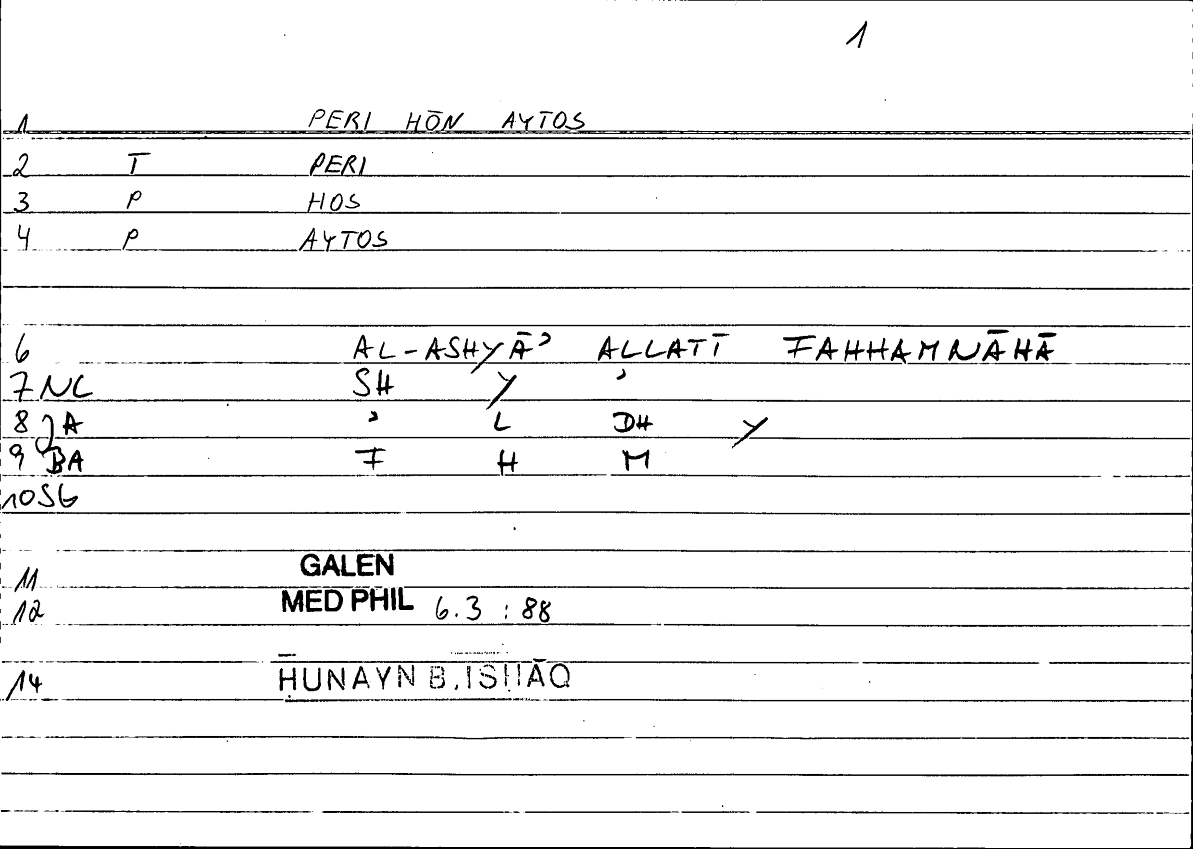 1
1 PERI HŌN AYTOS
2 T PERI
3 P HOS
4 P AYTOS
6 AL-ASHYĀʾ ALLATĪ FAHHAMNĀHĀ
7 NC SH Y ʾ
8 JA ʾ L DH Y
9 BA F H M
10 SG
11 GALEN
12 MED PHIL 6.3 : 88
14 ḤUNAYN B. ISḤĀQ